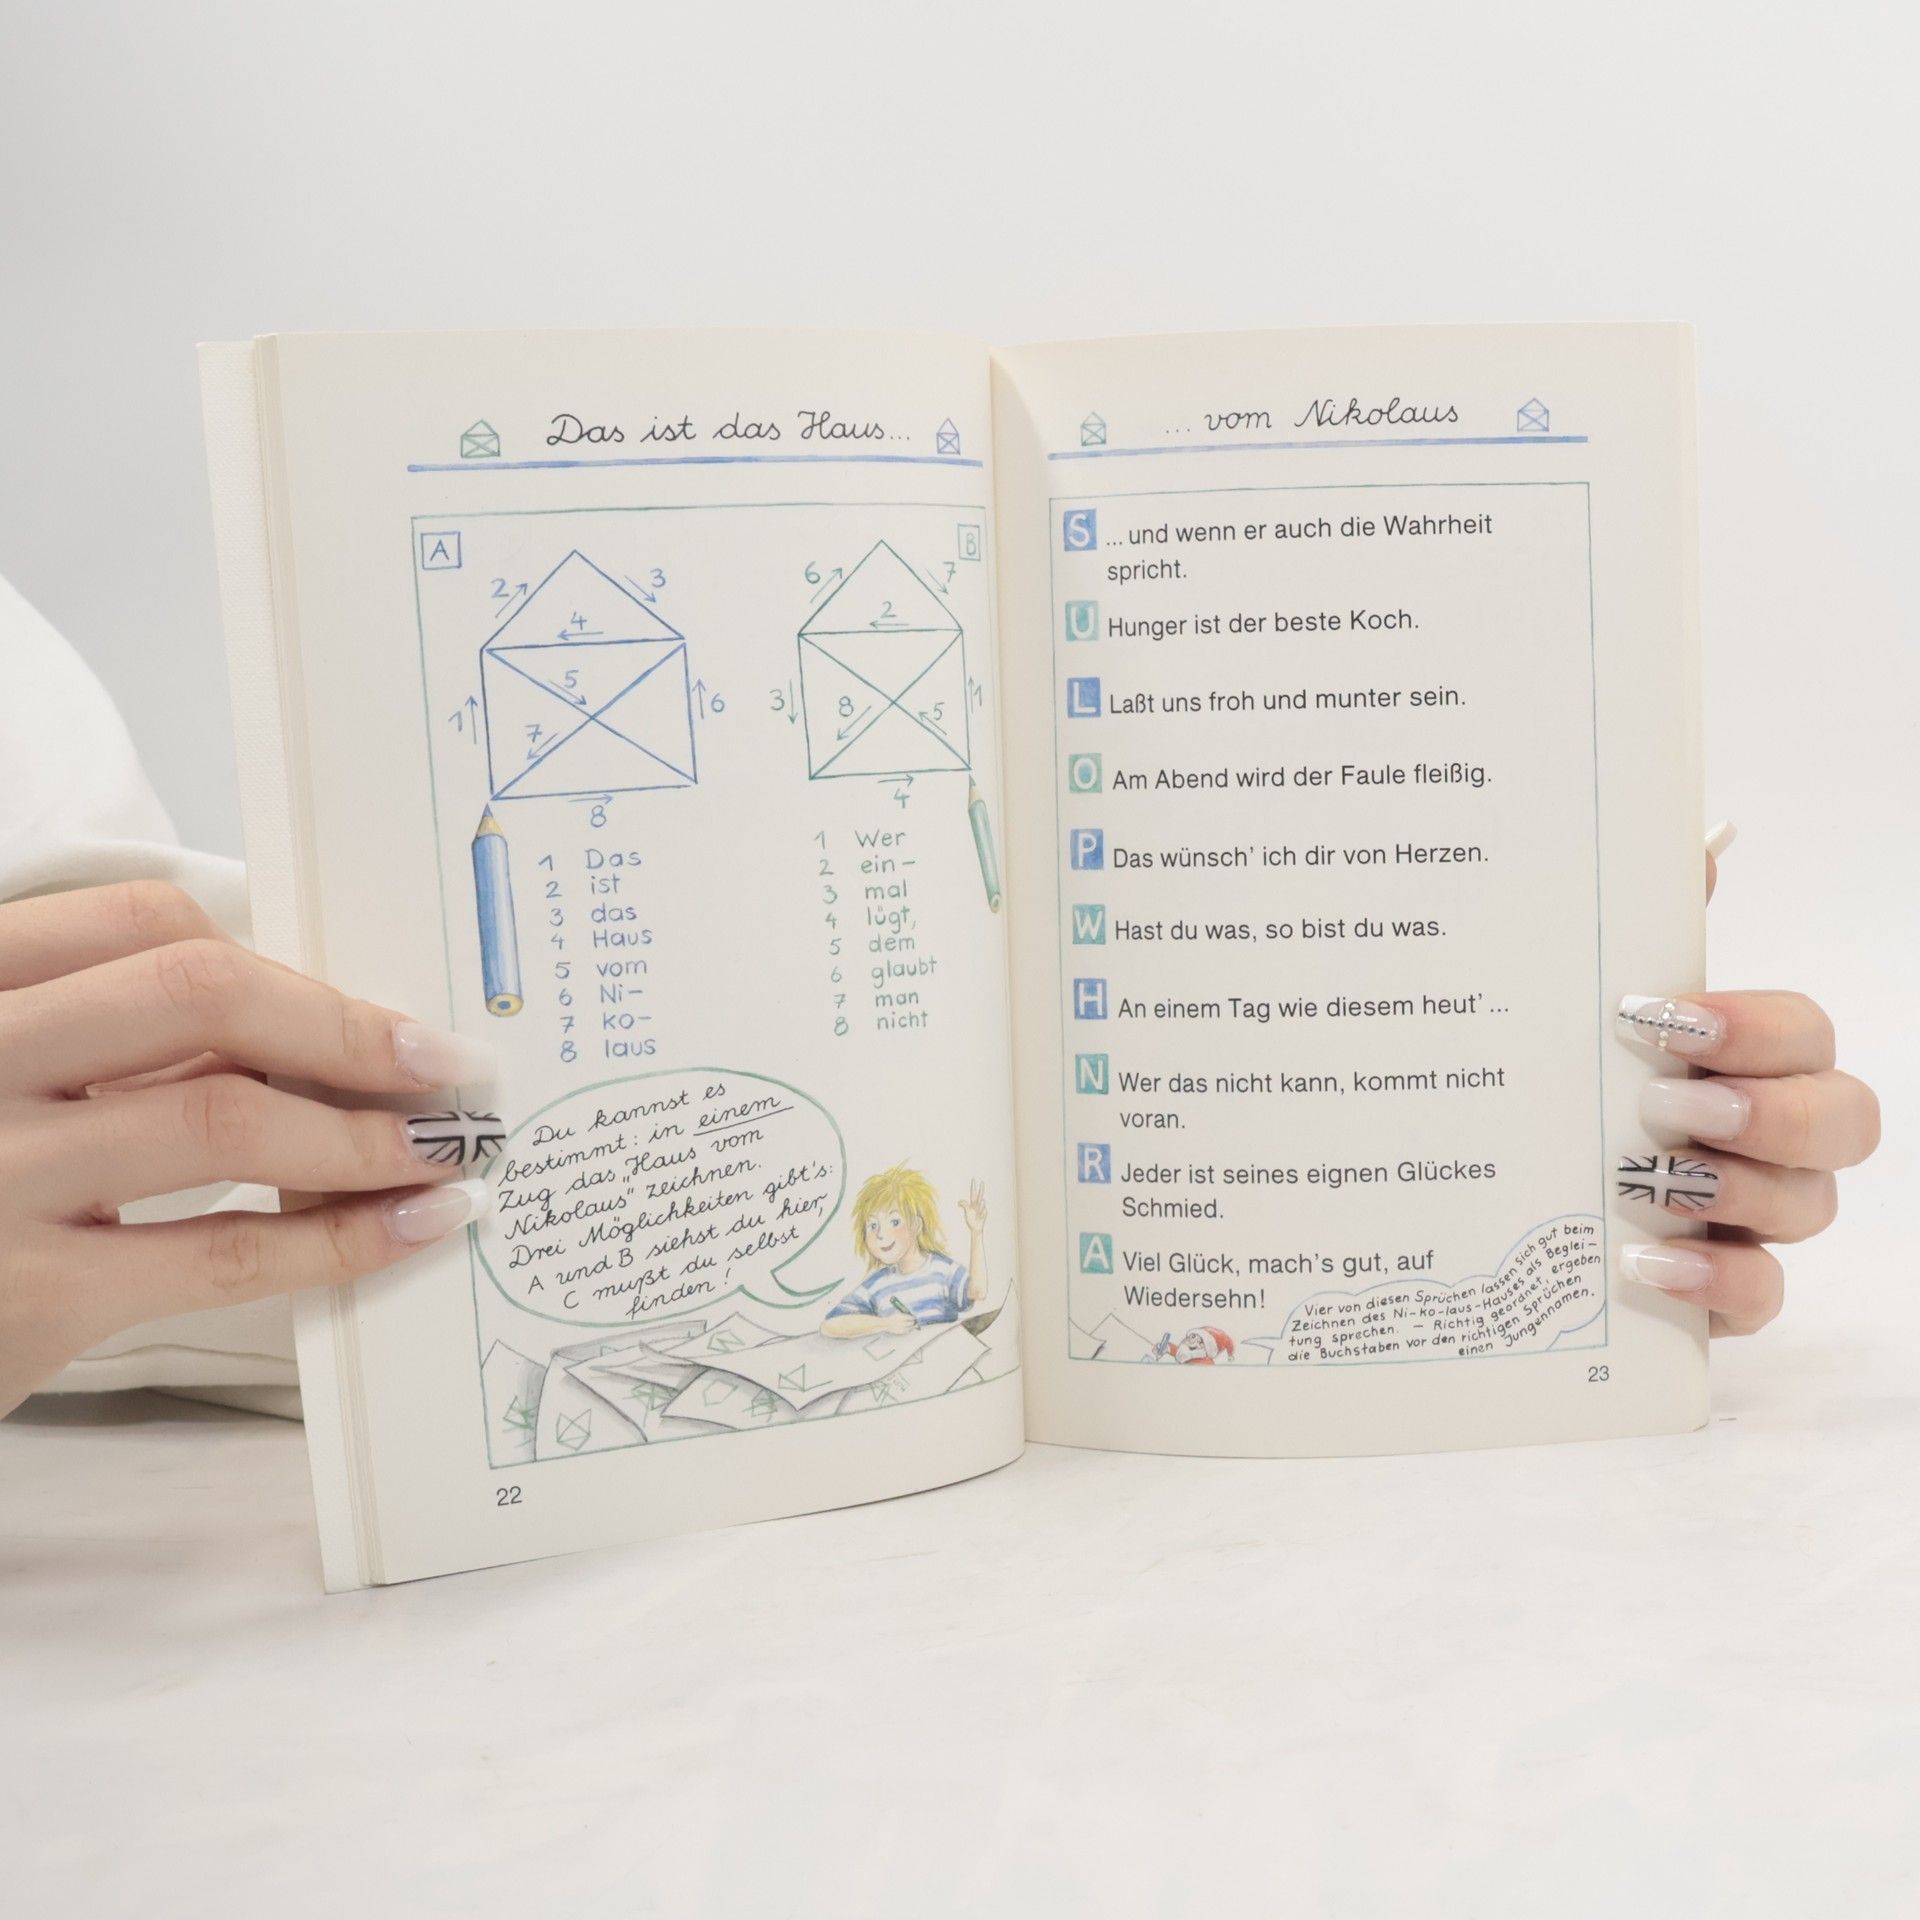 Das ist das Haus...
A
2
3
4
5
1
6
7
8
B
6
7
2
3
8
5
1
4
1 Das
2 ist
3 das
4 Haus
5 vom
6 Ni-
7 ko-
8 laus
1 Wer
2 ein-
3 mal
4 lügt,
5 dem
6 glaubt
7 man
8 nicht
Du kannst es
bestimmt: in einem
Zug das „Haus vom
Nikolaus" zeichnen.
Drei Möglichkeiten gibt's:
A und B siehst du hier,
C mußt du selbst
finden!
22
... vom Nikolaus
S ... und wenn er auch die Wahrheit
spricht.
U Hunger ist der beste Koch.
L Laßt uns froh und munter sein.
O Am Abend wird der Faule fleißig.
P Das wünsch' ich dir von Herzen.
W Hast du was, so bist du was.
H An einem Tag wie diesem heut' ...
N Wer das nicht kann, kommt nicht
voran.
R Jeder ist seines eignen Glückes
Schmied.
A Viel Glück, mach's gut, auf
Wiedersehn!
Vier von diesen Sprüchen lassen sich gut beim
Zeichnen des Ni-ko-laus-Hauses als Beglei-
tung sprechen. – Richtig geordnet, ergeben
die Buchstaben vor den richtigen Sprüchen
einen Jungennamen.
23